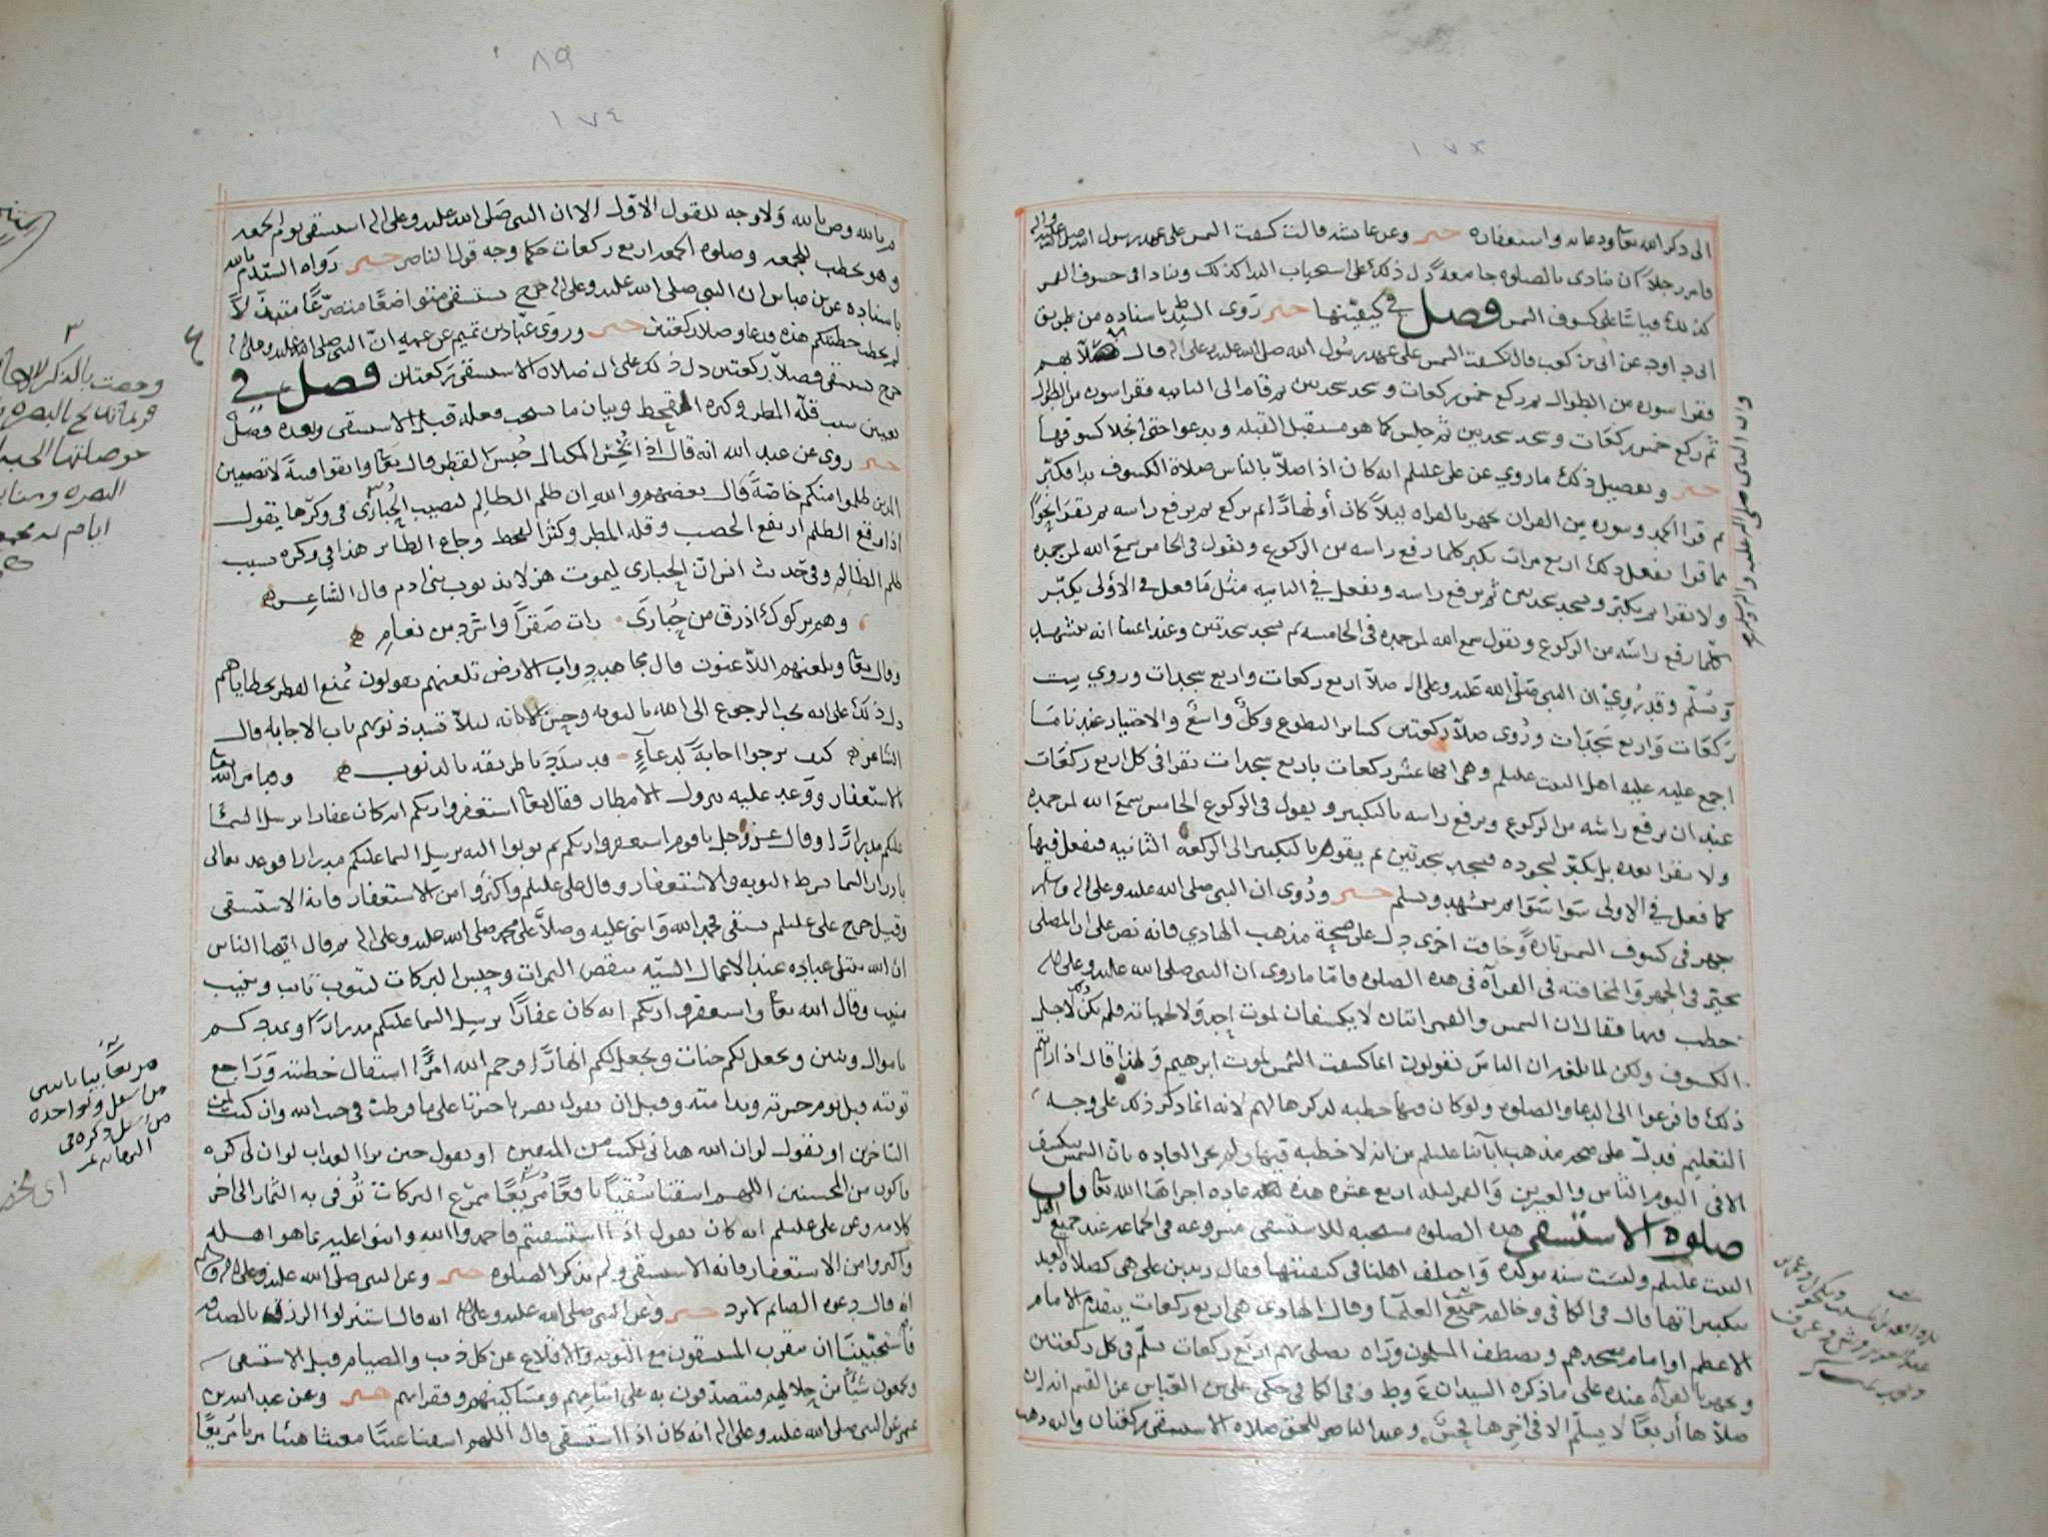 ١٧٣
الى ذكر الله تعا ودعائه واستغفاره خبر وعن عائشه قالت كسفت الشمس على عهد رسول الله صلى الله عليه واله
فامر رجلاً ان ينادى بالصلوه جامعة دل ذلك على استحباب الندا كذلك وينادا فى خسوف القمر
كذلك قياسًا على كسوف الشمس فصل في كيفيتها خبر رَوى السيد ط باسناده من طريق
ابى داود عن ابى بن كعب قال انكسفت الشمس على عهد رسول الله صلى الله عليه وعلى اله قال صلا بهم
فقرا سوره من الطوال ثم ركع خمس ركعات وسجد سجدتين ثم قام الى الثانيه فقرا سوره من الطوال
ثم ركع خمس ركعات وسجد سجدتين ثم جلس كما هو مستقبل القبله يدعوا حتى انجلا كسوفها
خبر وتفصيل ذلك ما روي عن على عليلم انه كان اذا صلا بالناس صلاة الكسوف بدا فكبّر
ثم قرا الحمد وسوره من القران يجهر بالقراه ليلاً كان أو نهارًا ثم يركع ثم يرفع راسه ثم يقرا نحوًا
مما قرا يفعل ذلك اربع مرات يكبر كلما رفع راسه من الركوع ويقول فى الخامس سمع الله لمن حمده
ولا يقرا ثم يكبّر ويسجد سجدتين ثم يرفع راسه ويفعل في الثانيه مثل مَا فعل في الأولى يكبّر
كلّما رفع راسه من الركوع ويقول سمع الله لمن حمده فى الخامسه ثم يسجد سجدتين وعندنا انه يتشهد
وَيُسلّم وقد رُوِيْ ان النبى صَلى الله عَليه وعلى اله صلاّ اربع ركعات واربع سجدات وروي ست
رَكعَات وَاربع سَجدَات ورُوى صلاّ ركعتين كسائر التطوع وكلٌ واسعٌ والاختيار عندنا مَا
اجمع عليه اهل البيت عليلم وهى انها عشر ركعات باربع سجدات يقرا فى كل اربع ركعَات
عند ان يرفع راسه من الركوع ويرفع راسه بالتكبير ويقول فى الركوع الخامس سمع الله لمن حمده
ولا يقرا بعده بل يكبّر لسجوده فيسجد سجدتين ثم يقوم بالتكبير الى الركعه الثانيه فيفعل فيها
كما فعل في الاولى سَوا سَوَا ثم يتشهد ويسلم خبر ورُوى ان النبى صلى الله عليه وعلى اله وسلم
جهر فى كسوف الشمس تارةً وخافت اخرى دل على صحة مذهب الهادي فانه نص على ان المصلى
يخيّر فى الجهر وَالمخافته فى القرآه فى هذه الصلوه فامّا ما روى ان النبى صلى الله عليه وعلى اله
خطب فيها فقال ان الشمس والقمر ايتان لا يكسفان لموت احد وَلا لحياته فلم يكن ذلك لاجل
الكسوف ولكن لما بلغه ان الناسَ يقولون انما كسفت الشمس لموت ابرهيم وَلهذا قال اذا رايتم
ذلك فافزعوا الى الدعا والصلوه ولو كان فيها خطبه لذكرها لهم لانه انما ذكر ذلك على وجه
التعليم فدلّ على صحه مذهب ابآئنا عليلم من انه لا خطبه فيها ولم تجر العاده بان الشمس تنكسف
الا فى اليوم الثامن والعشرين وَالقمر ليله اربع عشره هذه عاده اجراهَا الله تعا باب
صلوه الاستسقى هذه الصلوه مستحبه للاستسقى مشروعه فى الجماعه عند جميع اهل
البيت عليلم وليسَت سنه موكده وَاختلف اهلنا فى كيفيتها فقال زيد بن على هى كصلاة العيد
بتكبيراتها قال فى الكافى وخالفه جميع العلمآ وقال الهادى هى اربع ركعات يتقدم الامام
الاعظم او امام مسجدهم ويصطف المسلمون ورَاه يصلى بهم اربع ركعات يسلّم فى كل ركعتين
ويجهر بالقرآه عنده على ما ذكره السيدان ع وط وفى الكافى حكى على بن العباس عن القسم انه ان
صلاّها أربعًا لا يسلّم الا فى اخرها وعند الناصر للحق صلاه الاستسقى ركعتان واليه ذهب
وان النبى صلى الله عليه واله وسلم
٨٩
١٧٤
م بالله وص بالله وَلا وجه للقول الاول الا ان النبى صَلى الله عليه وعلى اله استسقى يوم الجمعه
وهو يخطب للجمعه وصلوه الجمعه اربع ركعات حكما وجه قول الناصر خبر رَواه السيّد م بالله
باسناده عن بن عباس ان النبى صلى الله عليه وعلى اله خرج يستسقى متواضعًا متضرّعًا متبذّلاً
لم يخطب خطبتكم هذه ودعا وصلا ركعتين خبر وروى عبّاد بن تميم عن عمه انّ النبى صلى الله عليه وعلى اله
خرج يستسقى فصلاّ ركعتين دل ذلك على ان صلاه الاستسقى ركعتان فصل في
تعيين سبب قلّه المطر وكثره القحط وبيان ما يستحب فعله قبل الاستسقى وبعده فصل
خبر روى عن عبد الله انه قال اذا بُخِسَ المكيال حُبسَ القطر قال تعَا واتقوا فتنةً لا تصيبن
الذين ظلموا منكم خاصّةً قال بعضهم والله ان ظلم الظالِم لتصيب الحُبَارى فى وكرها يقول
اذا وقع الظلم ارتفع الخصب وقله المطر وكثر القحط وجاع الطائر هذا فى وكره بسبب
ظلم الظالِم وفى حَديث انس انّ الحبارى ليموت هزلا بذنوب بنى ادم قال الشاعر
رات صَقرًا وَاشرد من نعام
وقال تعَا ويلعنهم اللاّعنون قال مجاهد دواب الارض تلعنهم يقولون نُمنع القطر بخطاياهم
دل ذلك على انه يجب الرجوع الى الله بالتوبه وحسن الانابه ليلاّ تسد ذنوبهم باب الاجابه قال
الشاعر كيف نرجوا اجابةً لدعآءٍ قد سدَدنا طريقه بالذنوب وقد امر الله تعا
بالاستغفار ووَعد عليه بنزول الامطار فقال تعَا استغفروا ربكم انه كان غفارا يرسل السمَآ
عليكم مدرارًا وقال عز وجل يا قوم استغفروا ربكم ثم توبوا اليه يرسل السما عليكم مدرارا فوعد تعالى
بادرار السما بشرط التوبه والاستغفار وقال على عليلم واكثروا من الاستغفار فانه الاستسقى
وقيل خرج على عليلم يستسقى فحمد الله وَاثنى عليه وصلاَّ على محمد صلى الله عليه وعلى اله ثم قال ايها الناس
ان الله يبتلى عبادَه عند الاعمال السيّئه بنقص الثمرات وحبس البركات ليتوب تائب وينيب
منيب وقال الله تعَا واستغفروا ربكم انه كان غفارًا يرسل السما عليكم مدرارًا ويمددكم
باموال وبنين ويجعل لكم جنات ويجعل لكم انهارًا فرحم الله امرًا استقال خطيته وَرَاجع
توبته قبل يوم حسرته وندامته وقبل ان يقول نفس يا حسرتا على ما فرطت فى جنب الله وان كنت لمن
الساخرين او تقول لو ان الله هدانى لكنت من المتقين او تقول حين ترا العذاب لو ان لى كره
فاكون من المحسنين اللهم اسقنا سُقيًا نافعًا مُرِيعًا ممرّع البركات تُوُفى به الثمار الى اخر
كلامه وعن على عليلم انه كان يقول اذا استسقيتم فاحمدوا الله واثنوا عليه بما هو اهله
واكثروا من الاستغفار فانه الاستسقى ولم يذكر الصلوه خبر وعن النبى صلى الله عليه وعلى اله وسلم
انه قال دعوه الصائم لا ترد خبر وعن النبى صلى الله عليه وعلى اله انه قال استنزلوا الرزق بالصدقه
فاستحببنَا ان يتقرب المستسقون مع التوبه والاقلاع عن كل ذنب والصيام قبل الاستسقى
ويجمعون شيئًا من حلالهم فيتصدّقون به على ايتامهم ومسَاكينهم وفقرائهم خبر وعن عبد الله بن
عمر عن النبى صلى الله عليه وعلى اله انه كان اذا استسقى قال اللهم اسقنا غيثًا مغيثا هنيئا مريا مُريعًا
٣
البصره
ايام
من اسفل